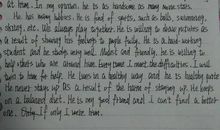 at him. In my opinion, he is as handsome as many movie stars.
He has many hobbies. He is fond of sports, such as balls, swimming,
skiing, etc. We always play together. He is willing to draw pictures as
a result of showing his feelings to people fully. He is a hard-working
student and he studies very well. Modest and friendly, he is willing to
help others who are around him. Every time I meet the difficulties, I will
turn to him for help. He lives in a healthy way and he is healthy
He never stays up as a result of the harm of staying up. He keeps
on a balanced diet. He is my good friend and I can't find a better
one.